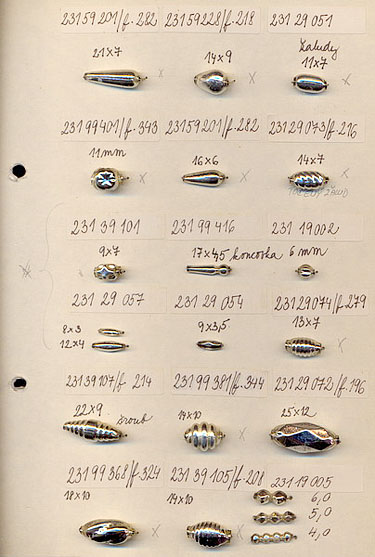 23159201/f.282 23159228/f.218 23129051
21x7 14x9 Žaludy 11x7
23199401/f.343 23159201/f.282 23129073/f.216
11mm 16x6 14x7
23139101 23199416 23119002
9x7 17x4,5 koncovka 6mm
23129057 23129054 23129074/f.279
8x3 9x3,5 13x7
12x4
23139107/f.214 23199381/f.344 23129072/f.196
22x9 šroub 14x10 25x12
23199368/f.324 23139105/f.208 23119005
18x10 14x10 6,0
5,0
4,0